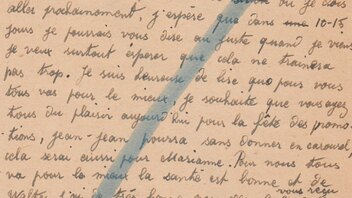 où je dois
aller prochainement, j'espère que dans 10-15
jours je pourrais vous dire au juste quand je viens
je veux surtout espérer que cela ne traînera
pas trop. Je suis heureuse de lire que pour vous
tous vas pour le mieux, je souhaite que vous ayez
tous du plaisir aujourd'hui pour la fête des promo-
tions, Jean-Jean pourra sans donner en carousel,
cela serai aussi pour Marianne. Pour nous tous
va pour le mieux la santé est bonne et de
vous reçu